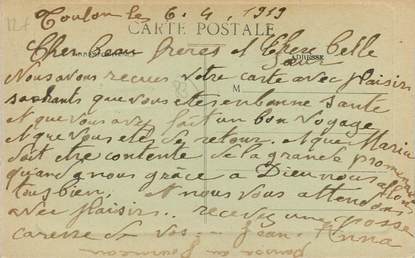 Toulon les 6. 4, 1919
CARTE POSTALE
Cher beau frères et Chere belle
sœur
ADRESSE
Nous avons recues votre carte avec plaisir
M
sachants que vous etes en bonne sante
et que vous avez fait un bon voyage
et que vous etes de retour. et que Marie
doit etre contente de la grande promenade
quand a nous grace a Dieu nous allons
tous bien. et nous vous attendons
avec plaisir.. recevez une grosse
caresse de vos Jean. Anna